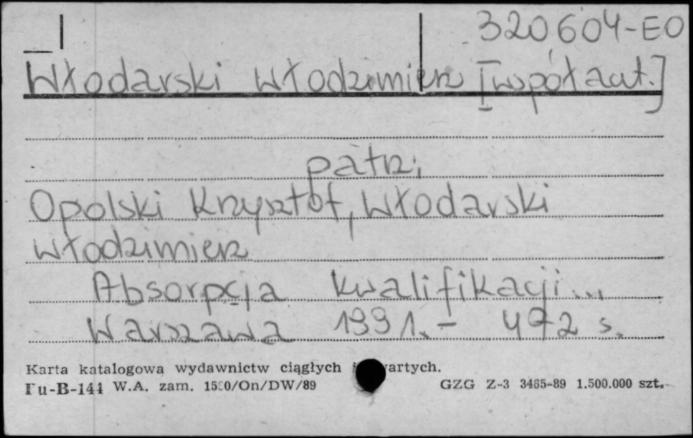 320604-EO
Włodarski Włodzimierz [współaut.]
patrz:
Opolski Krzysztof, Włodarski
Włodzimierz
Absorpcja kwalifikacji...
Warszawa 1991.- 472 s.
Karta katalogowa wydawnictw ciągłych
Pu-B-144 W.A. zam. /On/DW/89 GZG Z-3 3465-89 1.500.000 szt.